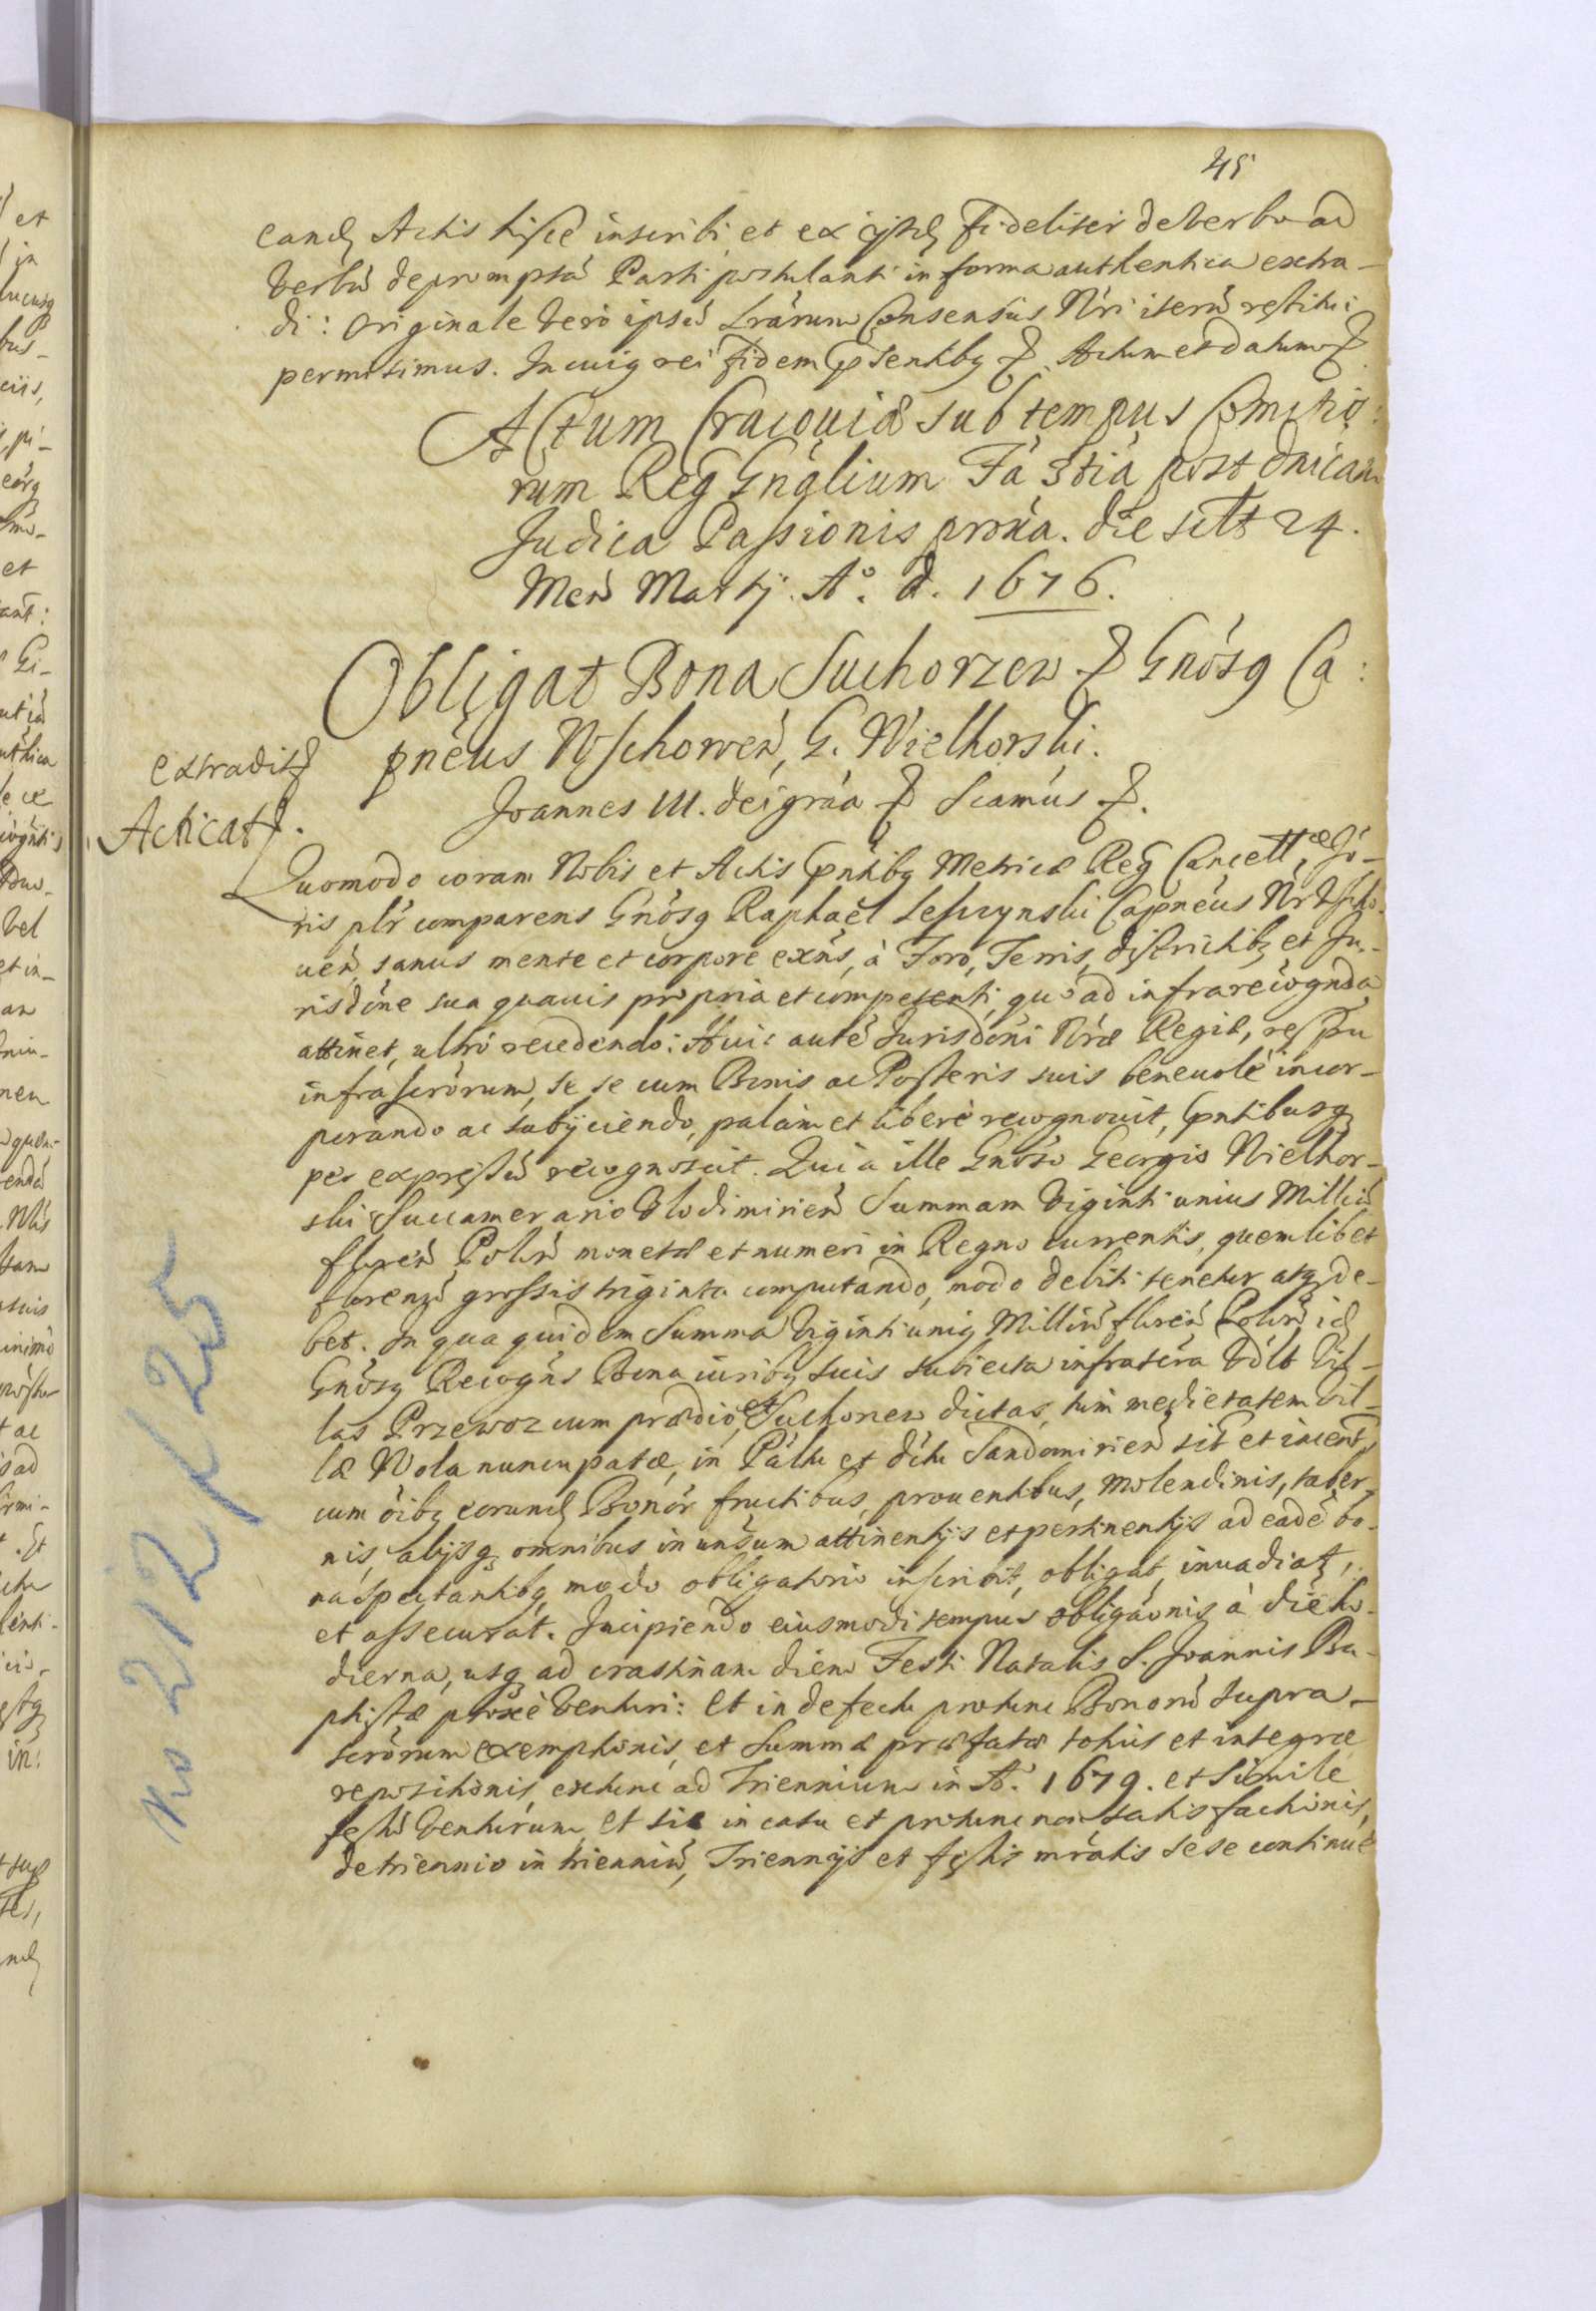 45
eand Actis hisce inscribi et ex ijsd fideliter de Verbo ad
Verbũ depromptã Parti postulanti in forma authentica extra-
di: Originale Vero ipsũ Lrãrum Consensus Nri iterũ restitui
permisimus. In cuiq rei fidem pñtibq &. Actum et datum &.
Actum Cracouiæ sub tempus Comitio:
rum Reg Gnãlium Fã 3tia post dnicam
Judica Passionis proxa. die sclt 24.
Men Martij. Aº. d. 1676.
Obligat Bona Suchorzew & Gnosq Ca:
pneus Wschowen, G. Wielhorski.
extradit
Acticat.
Joannes III. dei graa & Scamus &.
Quomodo coram Nobis et Actis pntibq Metricæ Reg Cancellæ, Jo-
ris plr comparens Gnosq Raphaël Leszczynski Capneus Nr Vscho-
uen, sanus mente et corpore exns, à Foro, Terris, districtibq et Ju-
risdone sua quauis propria et competenti, quo ad infrarecognda
attinet, ultro recedendo: Huic aute Jurisdoni Nræ Regiæ, respu
infrascrorum, se se cum Bonis ac Posteris suis beneuole incor-
porando ac subijciendo, palam et libere recognouit, pntibusq
per expressũ recognoscit. Quia ille Gnoso Georgio Wielhor-
ski Succamerario Vlodimirien Summam Viginti unius Milliũ
floren Polon monetæ et numeri in Regno currentis, quemlibet
florenũ grossis triginta computando, modo debiti tenetur atq de-
bet. In qua quidem Summa Viginti uniq Milliũ floren Polon id
Gnosq Recogns Bona iuribq suis subiecta infrascra Vdlt Vil-
las Przewoz cum prædio, et Suchorzew dictas, tum medietatem Vil-
læ Wola nuncupatæ, in Paltu et dctu Sandomirien sit et iacent,
cum oibq eorund Bonor fructibus, prouentibus, molendinis, taber-
nis, alijsq omnibus in unsum attinentijs et pertinentijs ad eade bo-
na spectantibq, modo obligatorio inscribit, obligat, inuadiat,
et assecurat. Incipiendo eiusmodi tempus obligaonis à die ho-
dierna, usq ad crastinam diem Festi Natalis S. Joannis Ba-
ptistæ proxe Venturi: Et in defectu protunc Bonorũ supra-
scrorum exemptionis, et Summæ præfatæ totius et integræ
repositionis, extunc ad Triennium in Aº. 1679. et Simile
festũ Venturum. Et sic in casu et protunc non satisfactionis,
de triennio in trienniũ, Triennijs et festis mratis sese continue
No 212 / 25